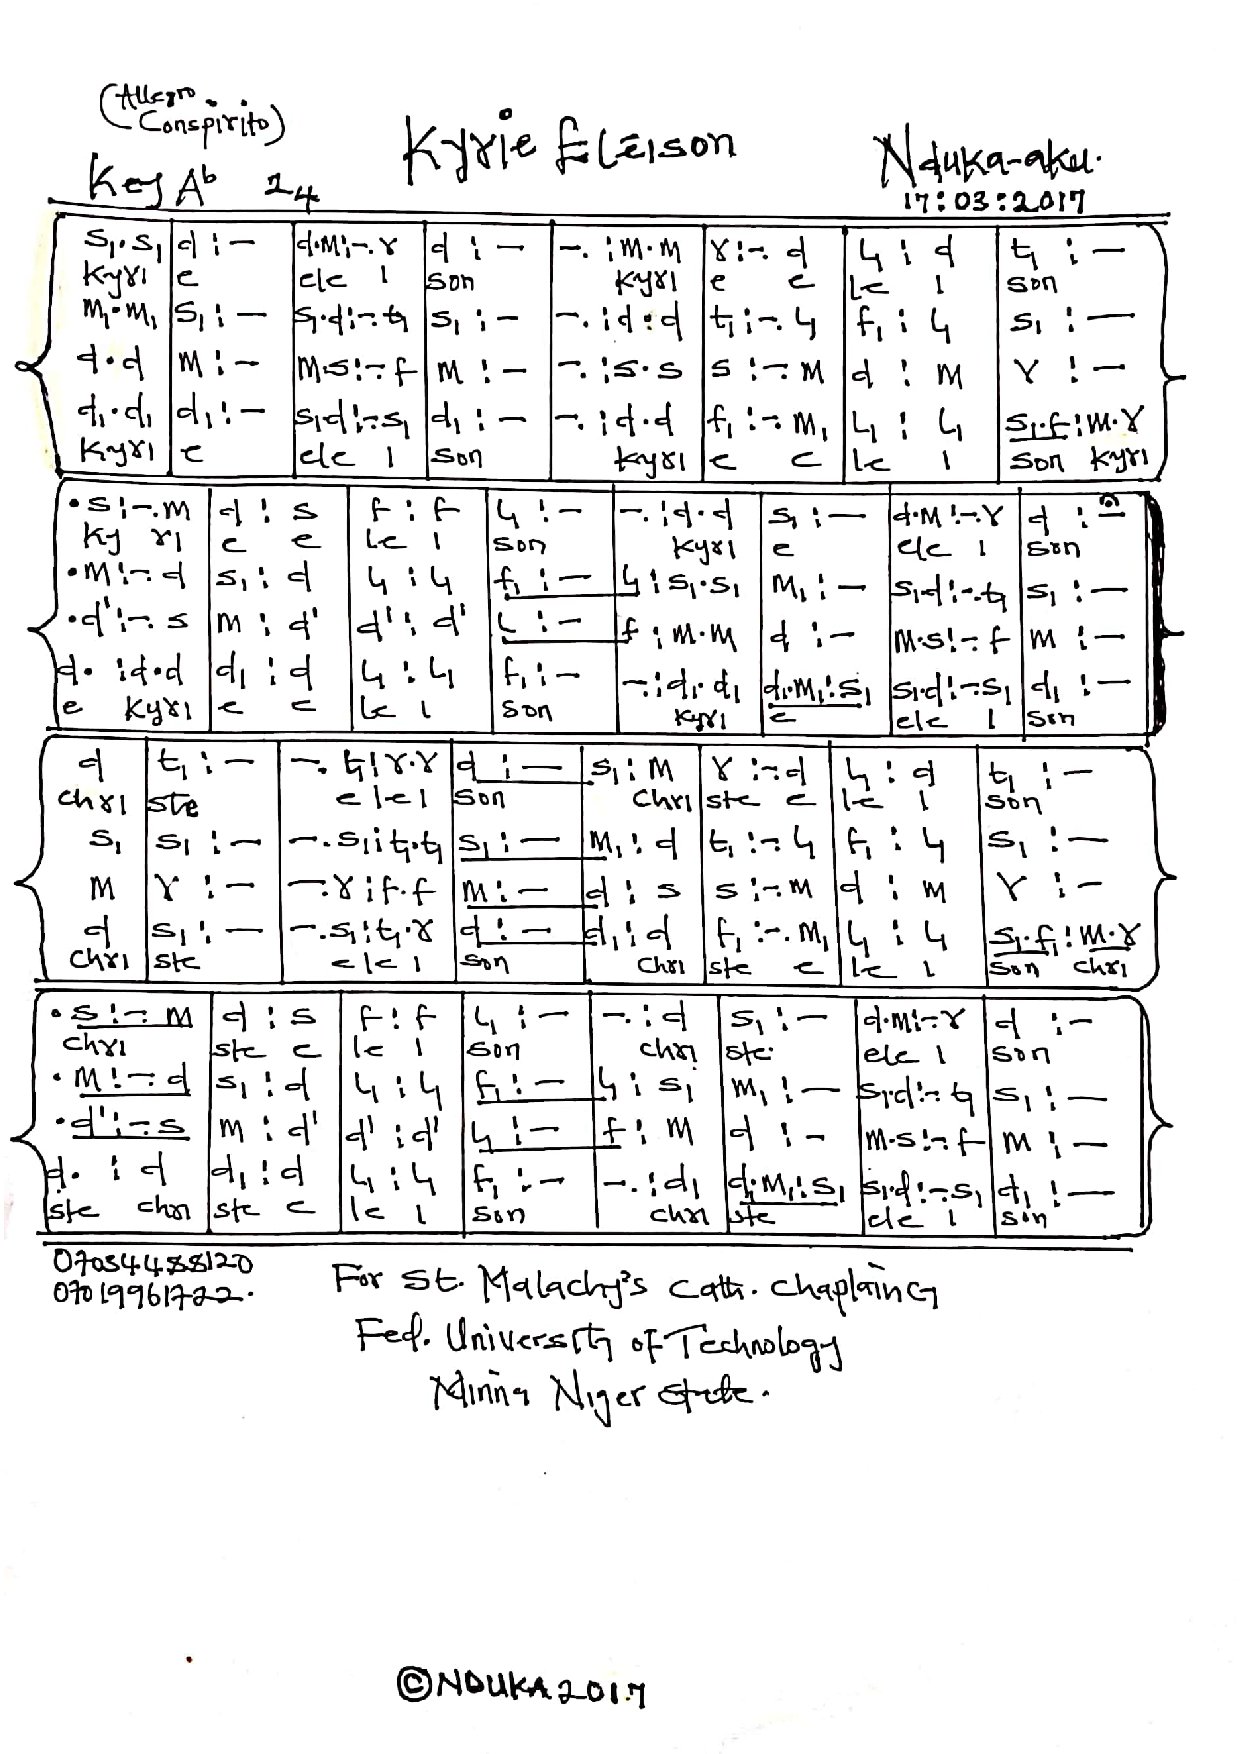 (Allegro
Conspirito)
Kyrie Eleison
Nduka-aku.
Key Ab 24
17:03:2017
s₁.s₁ | d :– | d.m:–.r | d :– | –. :m.m | r:–.d | l₁ : d | t₁ :–
Kyri e ele i son Kyri e e le i son
m₁.m₁ | s₁ :– | s₁.d:–.t₁ | s₁ :– | –. :d.d | t₁:–.l₁ | f₁ : l₁ | s₁ :–
d.d | m :– | m.s:–.f | m :– | –. :s.s | s :–.m | d : m | r :–
d₁.d₁ | d₁ :– | s₁.d:–.s₁ | d₁ :– | –. :d.d | f₁ :–.m₁ | l₁ : l₁ | s₁.f₁:m.r
Kyri e ele i son Kyri e e le i son Kyri
.s:–.m | d : s | f : f | l₁ :– | –. :d.d | s₁ :– | d.m:–.r | d :–
Ky ri e e le i son Kyri e ele i son
.m:–.d | s₁ : d | l₁ : l₁ | f₁ :– | l₁ :s₁.s₁ | m₁ :– | s₁.d:–.t₁ | s₁ :–
.d':–.s | m : d' | d' : d' | l :– | f :m.m | d :– | m.s:–.f | m :–
d. :d.d | d₁ : d | l₁ : l₁ | f₁ :– | –. :d₁.d₁ | d₁.m₁:s₁ | s₁.d:–.s₁ | d₁ :–
e Kyri e e le i son Kyri e ele i son
d | t₁ :– | –.t₁:r.r | d :– | s₁ : m | r :–.d | l₁ : d | t₁ :–
chri ste e le i son Chri ste e le i son
s₁ | s₁ :– | –.s₁:t₁.t₁ | s₁ :– | m₁ : d | t₁ :–.l₁ | f₁ : l₁ | s₁ :–
m | r :– | –.r:f.f | m :– | d : s | s :–.m | d : m | r :–
d | s₁ :– | –.s₁:t₁.r | d :– | d₁ : d | f₁ :–.m₁ | l₁ : l₁ | s₁.f₁:m.r
chri ste e le i son Chri ste e le i son chri
.s:–.m | d : s | f : f | l₁ :– | –. :d | s₁ :– | d.m:–.r | d :–
chri ste e le i son chri ste ele i son
.m:–.d | s₁ : d | l₁ : l₁ | f₁ :– | l₁ : s₁ | m₁ :– | s₁.d:–.t₁ | s₁ :–
.d':–.s | m : d' | d' : d' | l₁ :– | f : m | d :– | m.s:–.f | m :–
d. : d | d₁ : d | l₁ : l₁ | f₁ :– | –. :d₁ | d₁.m₁:s₁ | s₁.d:–.s₁ | d₁ :–
ste chri ste e le i son chri ste ele i son
07019961722.
For St. Malachy's Cath. Chaplaincy
Fed. University of Technology
Minna Niger State.
©NDUKA2017